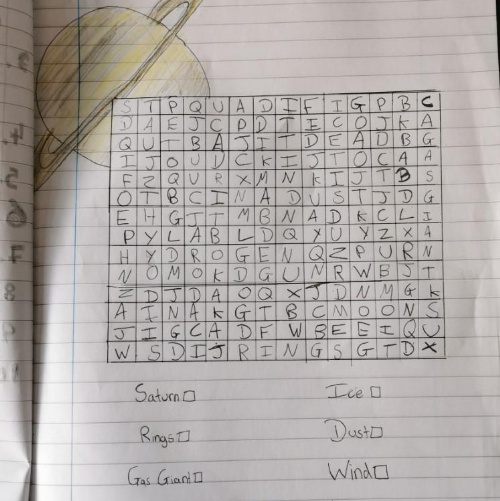 S T P Q U A D I F I G P B C
D A E J C P D I E C O J K A
Q U T B A J I T D E A D B G
I J O U D C K I J T O C A A
F Z Q U R X M N K I J T B S
O T B C I N A D U S T J D G
E H G J T M B N A D K C L I
P Y L A B L D Q X U Y Z X A
H Y D R O G E N Q Z P U R N
N O M O K D G U N R W B J T
Z D J D A O Q X J D N M G K
A I N A K G T B C M O O N S
J I G C A D F W B E E I Q U
W S D I J R I N G S G T D X
Saturn Ice
Rings Dust
Gas Giant Wind